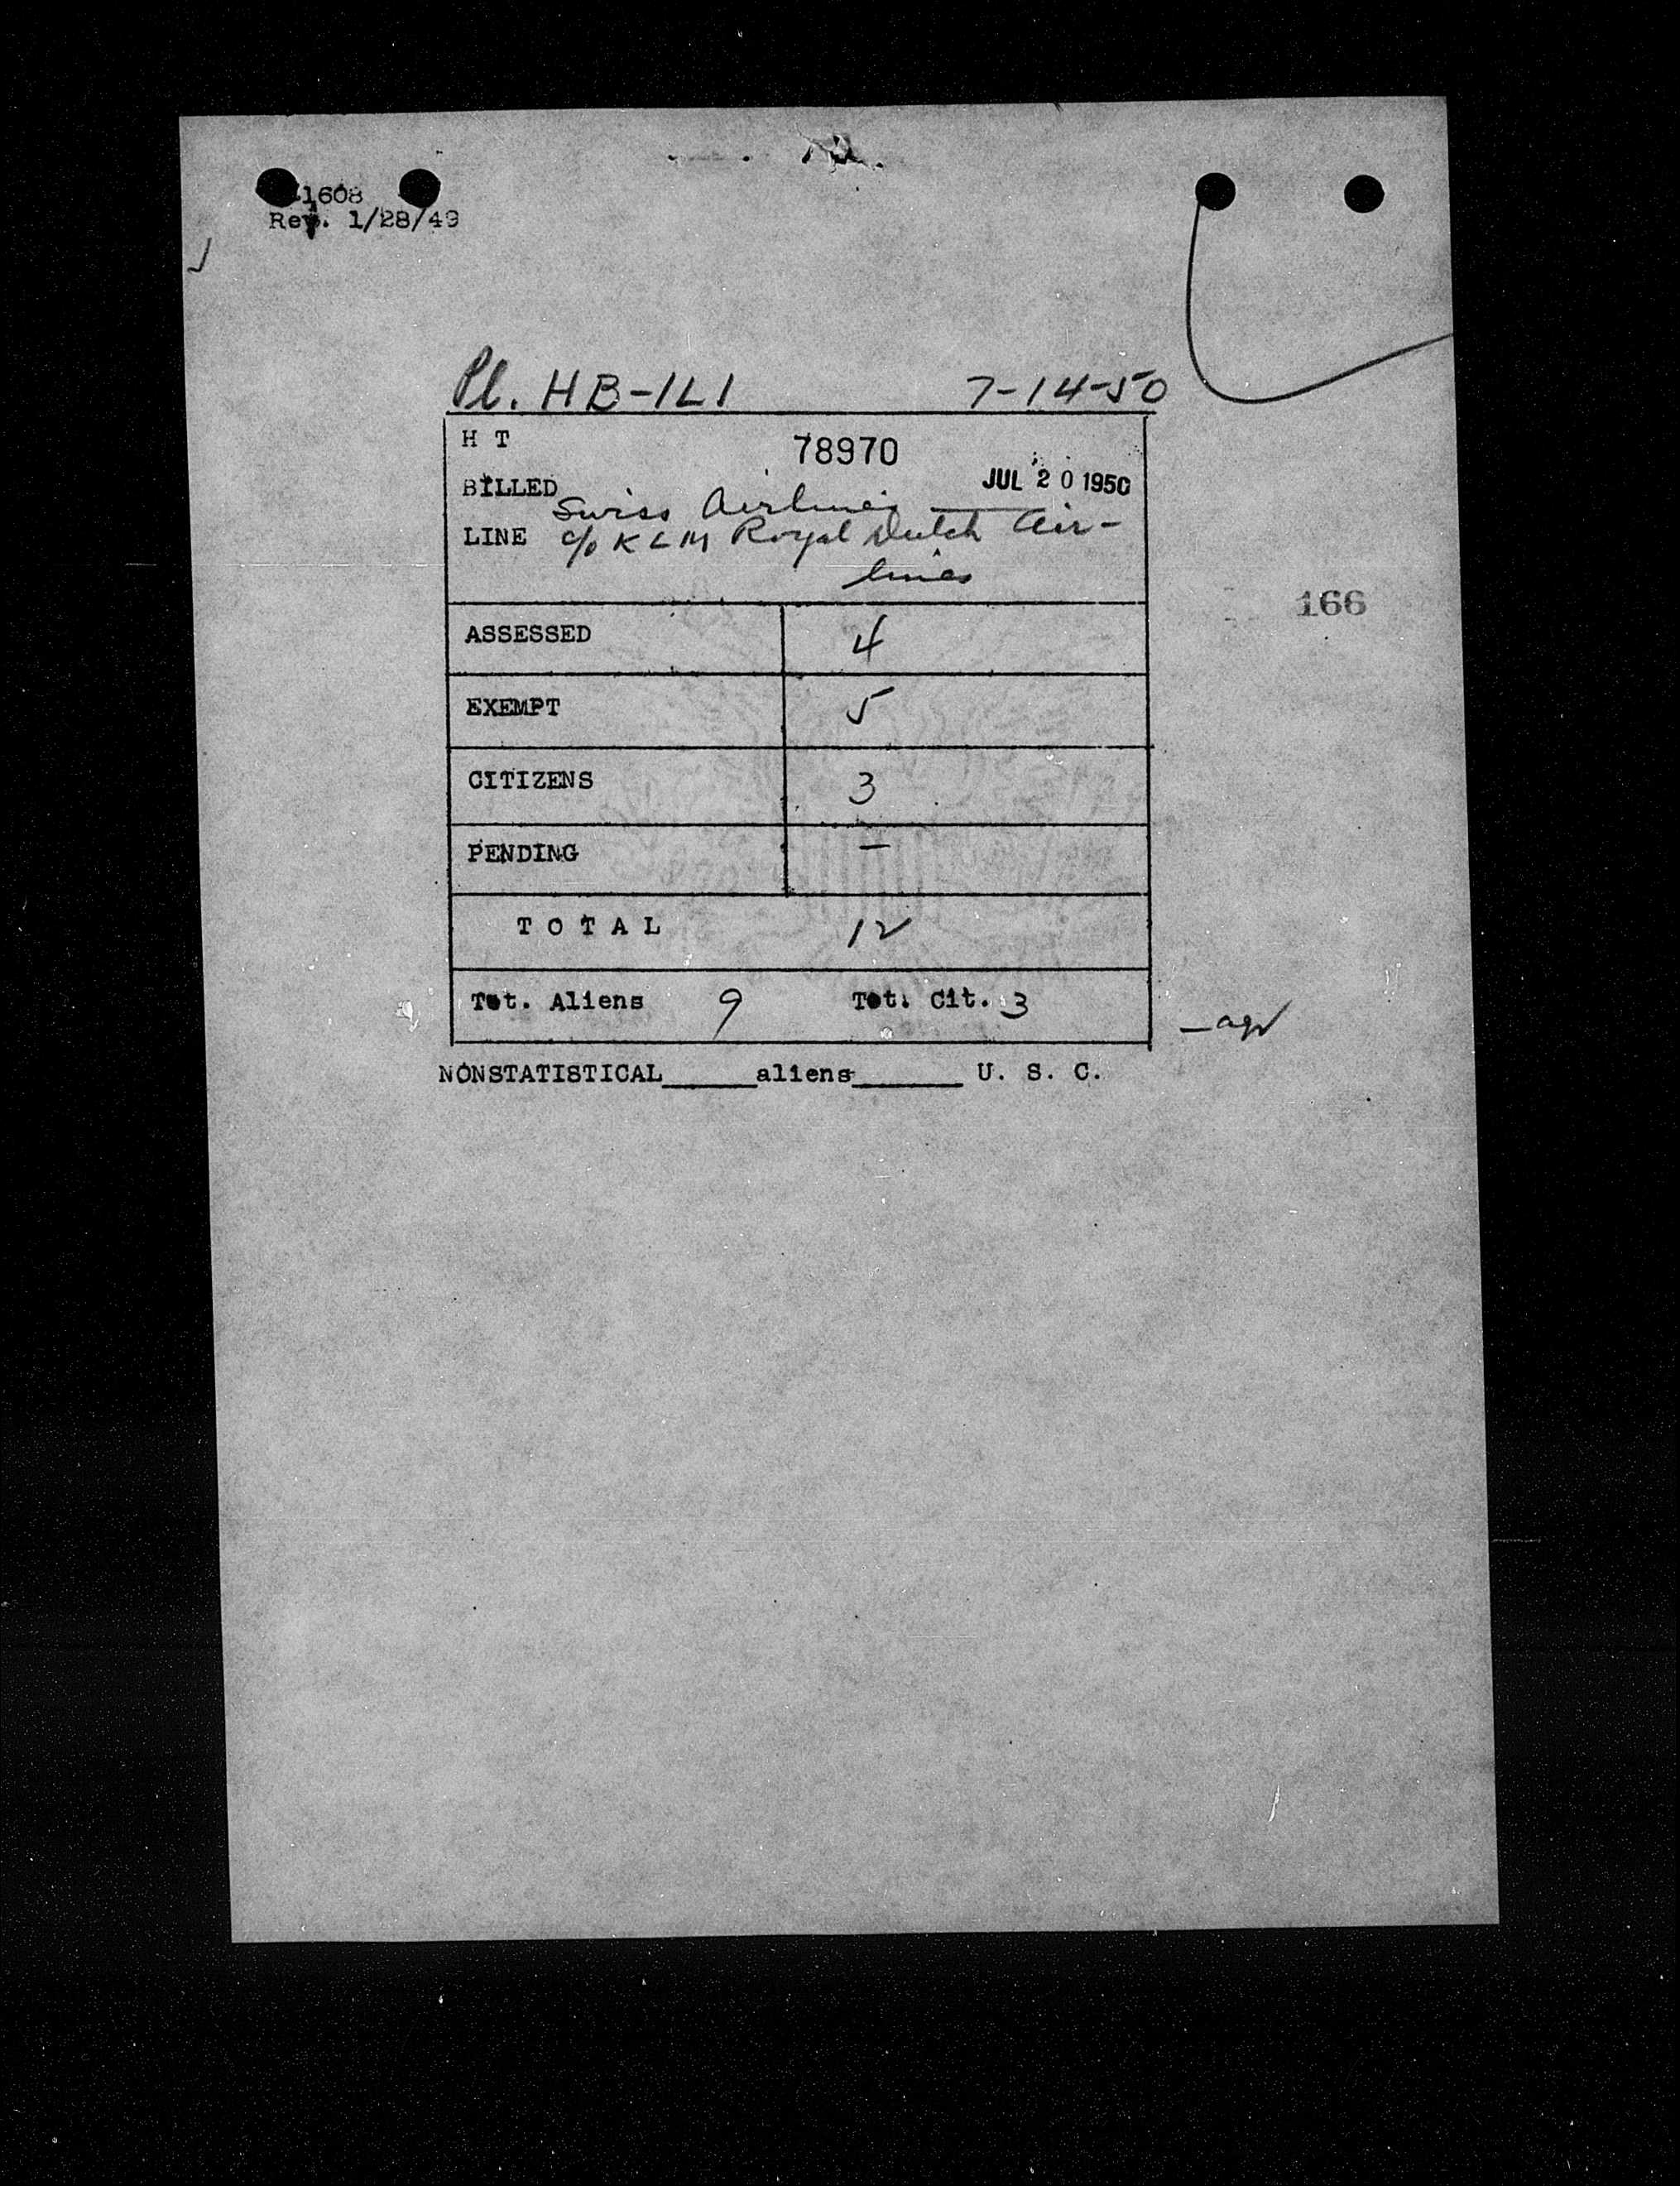 1608
Rev. 1/28/49
Pl. HB-IL1 7-14-50
H T 78970
BILLED JUL 20 1950
Swiss Airlines
LINE c/o KLM Royal Dutch Air-
lines
166
ASSESSED 4
EXEMPT 5
CITIZENS 3
PENDING —
T O T A L 12
Tot. Aliens 9 Tot. Cit. 3
NONSTATISTICAL______aliens_______ U. S. C.